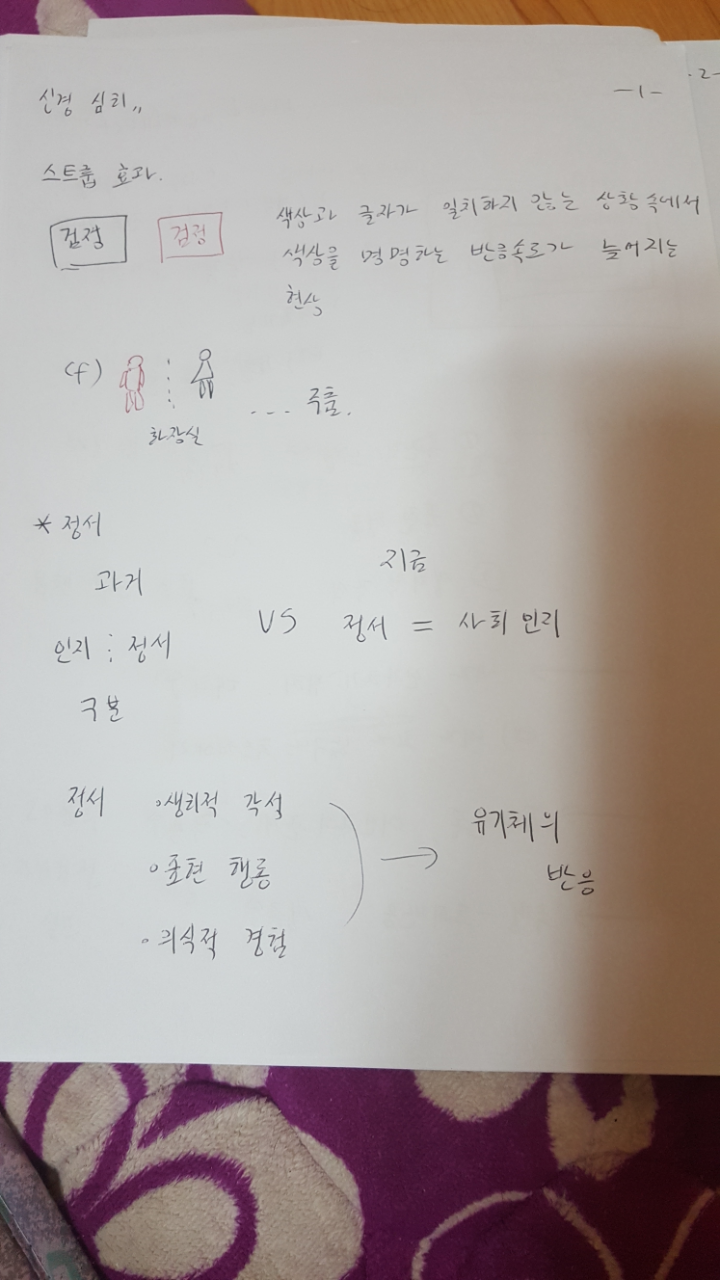 신경 심리,,
-1-
·2-
스트룹 효과.
검정 검정
색상과 글자가 일치하지 않는 상황 속에서
색상을 명명하는 반응속로가 늘어지는
현상
(f)
화장실
... 주춤.
* 정서
과거
인지 ⋮ 정서
구분
VS
지금
정서 = 사회 인지
정서 ·생리적 각성
·표현 행동
·의식적 경험
→ 유기체의
반응